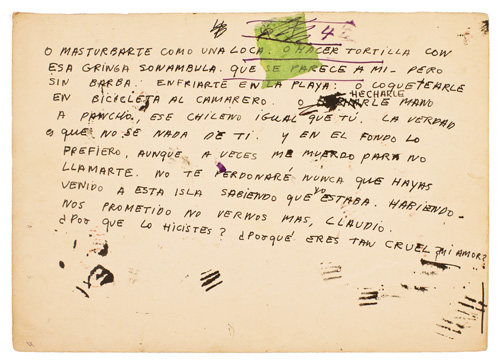 42
O MASTURBARTE COMO UNA LOCA. O HACER TORTILLA CON
ESA GRINGA SONAMBULA. QUE SE PARECE A MI - PERO
SIN BARBA. ENFRIARTE EN LA PLAYA. O COQUETEARLE
EN BICICLETA AL CAMARERO. O HECHARLE MANO
A PANCHO, ESE CHILENO IGUAL QUE TÚ. LA VERDAD
ES QUE NO SE NADA DE TI. Y EN EL FONDO LO
PREFIERO, AUNQUE A VECES ME MUERDO PARA NO
LLAMARTE. NO TE PERDONARÉ NUNCA QUE HAYAS
VENIDO A ESTA ISLA SABIENDO QUE YO ESTABA. HABIENDO-
NOS PROMETIDO NO VERNOS MAS, CLAUDIO.
¿POR QUE LO HICISTES? ¿PORQUÉ ERES TAN CRUEL MI AMOR?